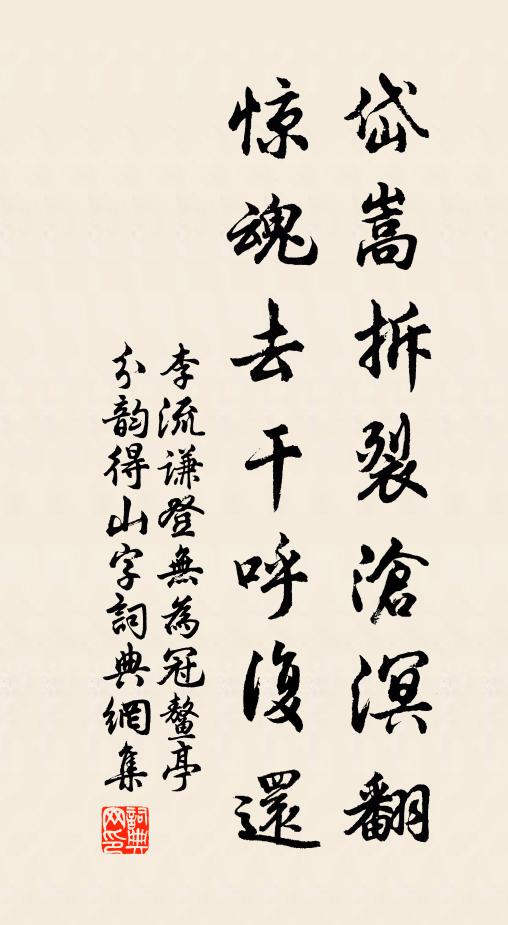 岱嵩拆裂滄溟翻
惊魂去干呼復還
李流谦登無為冠鰲亭
分韵得山字詞典網集
詞典网印